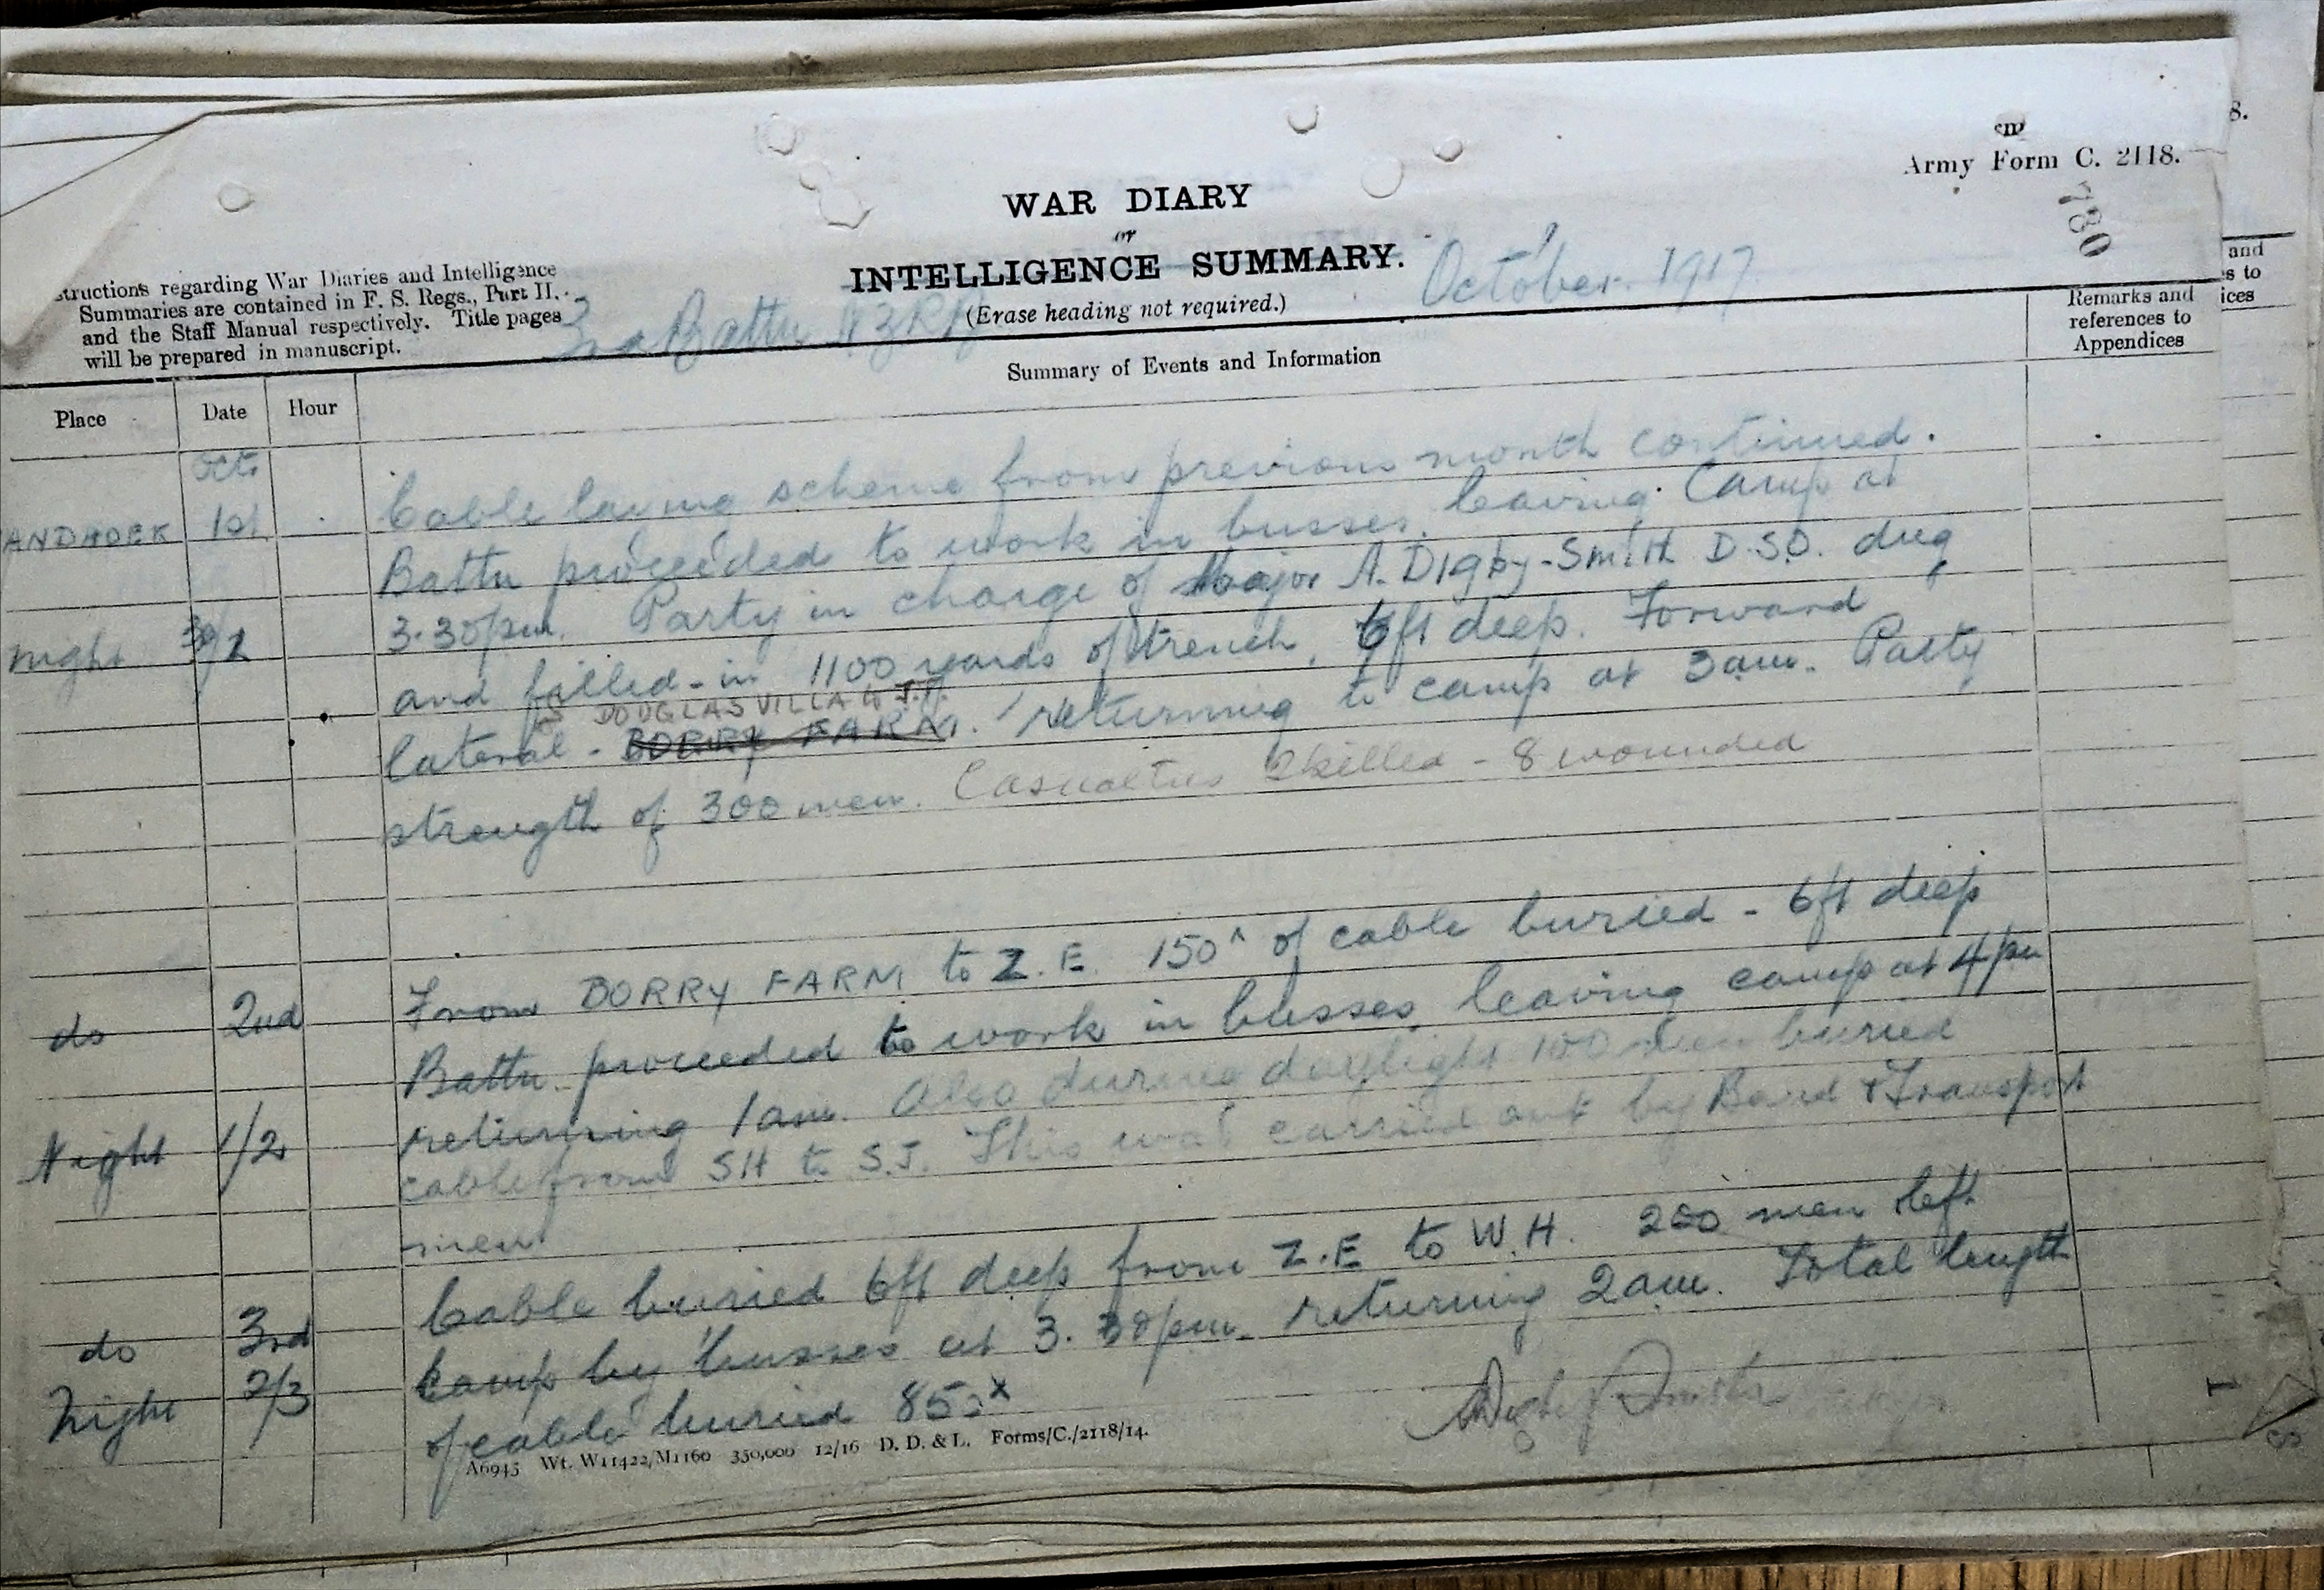 8.
Army Form C. 2118.
780
WAR DIARY
or
INTELLIGENCE SUMMARY.
(Erase heading not required.)
October. 1917
structions regarding War Diaries and Intelligence
Summaries are contained in F. S. Regs., Part II.
and the Staff Manual respectively. Title pages
will be prepared in manuscript.
Battn NZRB
and
s to
ices
Place
Date
Hour
Summary of Events and Information
Remarks and
references to
Appendices
Oct.
ANDHOEK 1st Cable laying scheme from previous month continued.
Battn proceeded to work in busses, leaving Camp at
Night 30/1 3.30pm. Party in charge of Major A. Digby-Smith D.S.O. dug
and filled-in 1100 yards of trench, 6ft deep. Forward
DOUGLAS VILLA
lateral - BORRY FARM. returning to camp at 3am. Party
strength of 300 men. Casualties 2 killed - 8 wounded
do 2nd From BORRY FARM to Z.E. 150ˣ of cable buried - 6ft deep
Battn proceeded to work in busses, leaving camp at 4pm
Night 1/2 returning 1am. Also during daylight 100 men buried
cable from SH to S.J. This was carried out by Band & Transport
men
do 3rd Cable buried 6ft deep from Z.E to W.H. 200 men left
Night 2/3 camp by busses at 3.30pm. returning 2am. Total length
of cable buried 850ˣ
Digby Smith
A6945 Wt. W11422/M1160 350,000 12/16 D. D. & L. Forms/C./2118/14.